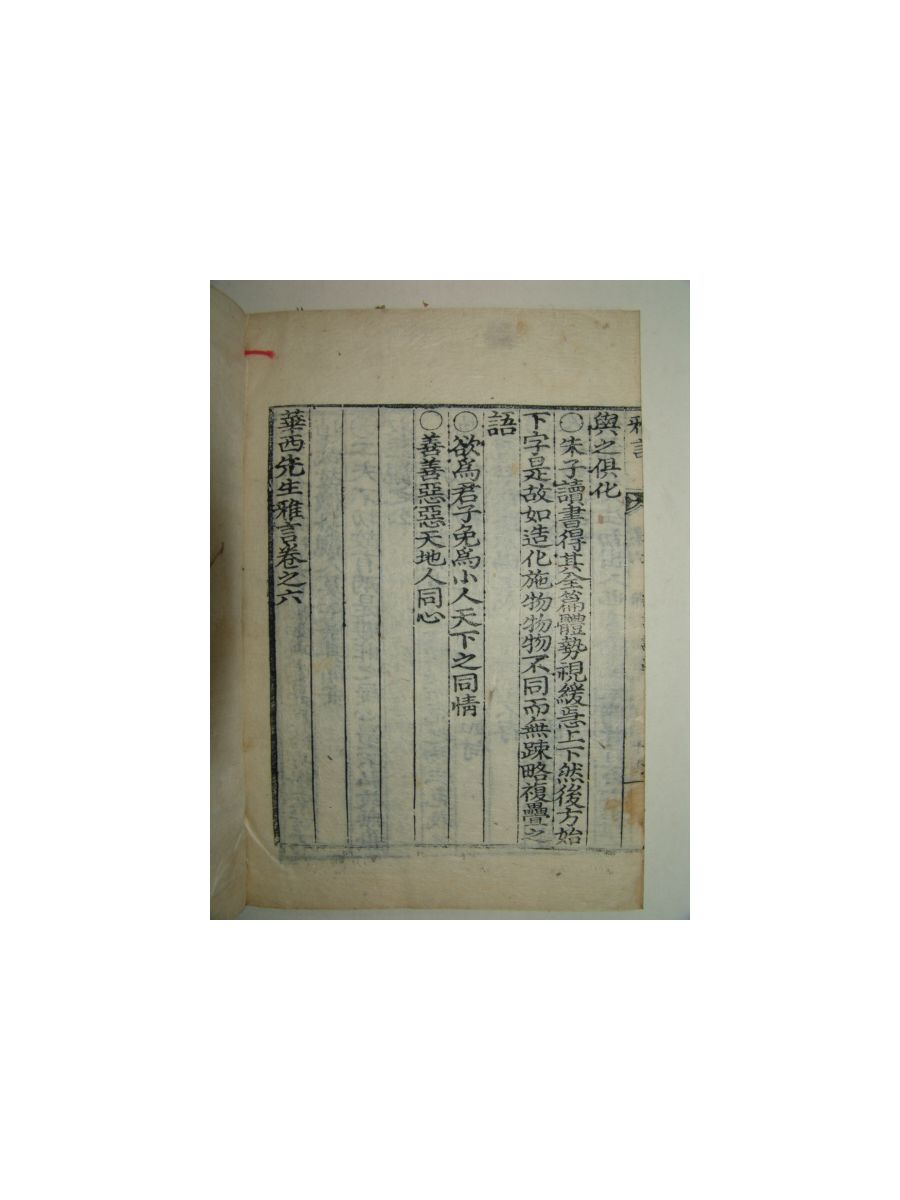 雅言
與之俱化
○朱子讀書得其全篇體勢視緩急上下然後方始
下字是故如造化施物物物不同而無踈略複疊之
語
○欲爲君子免爲小人天下之同情
○善善惡惡天地人同心
華西先生雅言卷之六